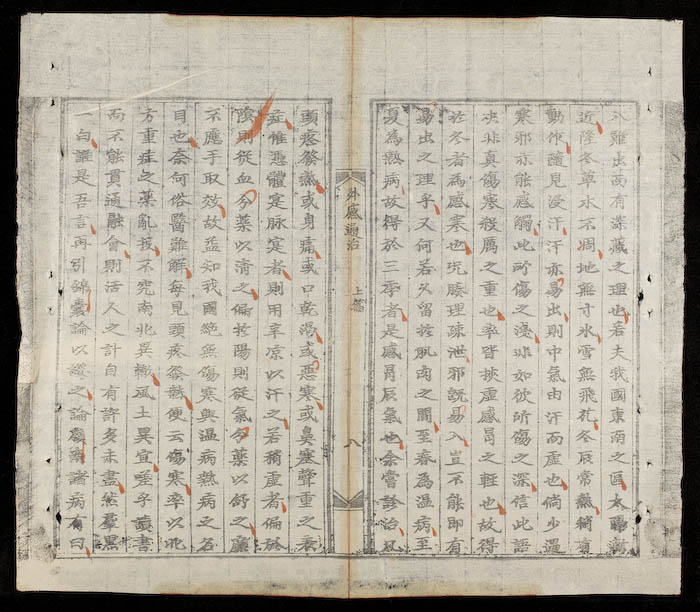 雖出而有深藏之理也若夫我國東南之區太陽
近隆冬草木不凋地無寸氷雪無飛花冬辰常熱稍有
動作隨見浸汗汗亦易出則中氣由汗而虛也倘少遇
寒邪亦能感觸此所傷之淺非如彼所傷之深信此語
决非真傷寒殺厲之重也率皆挾虛感冒之輕也故得
於冬者為感寒也况腠理疎泄邪既易入豈不能即有
易出之理乎又何若久留於肌肉之間至春為温病至
夏為熱病故得於三季者是感冒辰氣也余嘗診治凡
外感通治 上篇 八
頭疼發熱或身痛或口乾渴或惡寒或鼻塞聲重之表
症惟憑體寔脉寔者則用辛凉以汗之若稍虛者偏於
陰則從血分藥以清之偏於陽則從氣分藥以舒之靡
不應手取效故益知我國絶無傷寒與温病熱病之名
目也奈何俗醫難解每見頭疼發熱便云傷寒率以北
方重症之藥亂投不究南北異轍風土異宜嗟乎讀書
而不能貫通融會則活人之計自有許多未盡然羣黑
一白誰是吾言再引錦囊論以證之論諸病有曰